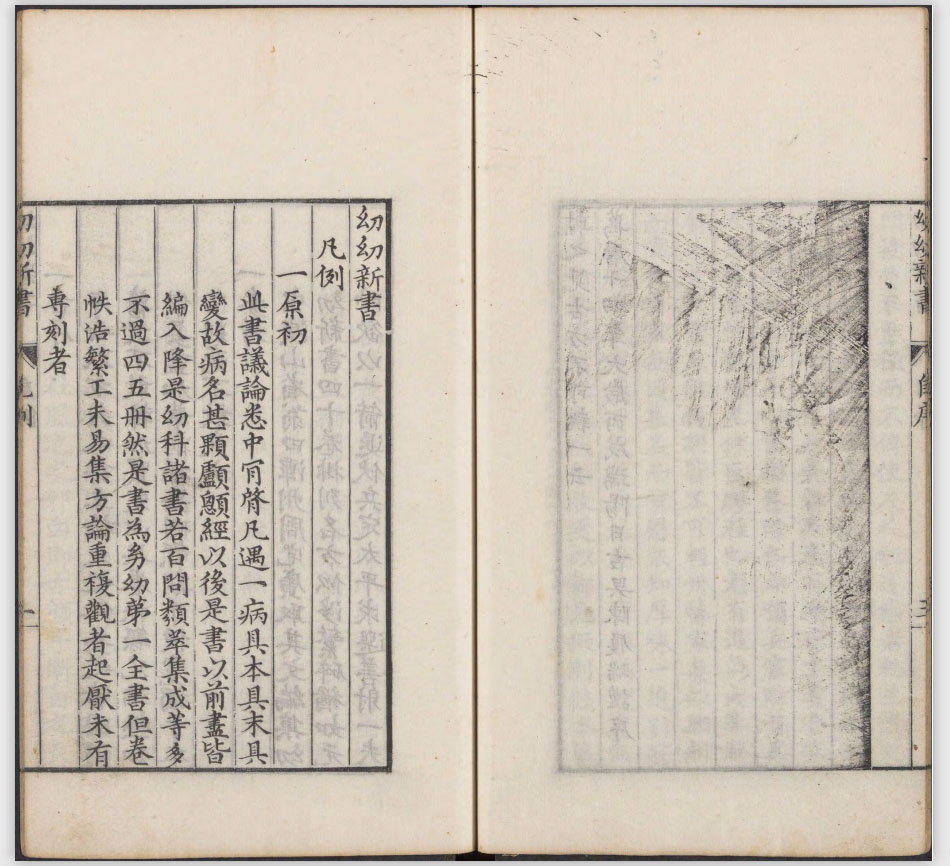 幼幼新書
幼幼新書
凡例
一原初
此書議論悉中肯綮凡遇一病具本具末具
變故病名甚顆顱顖經以後是書以前盡皆
編入降是幼科諸書若百問類萃集成等多
不過四五冊然是書為㓜幼第一全書但卷
帙浩繁工未易集方論重複觀者起厭未有
專刻者
幼幼新書 凡例 一